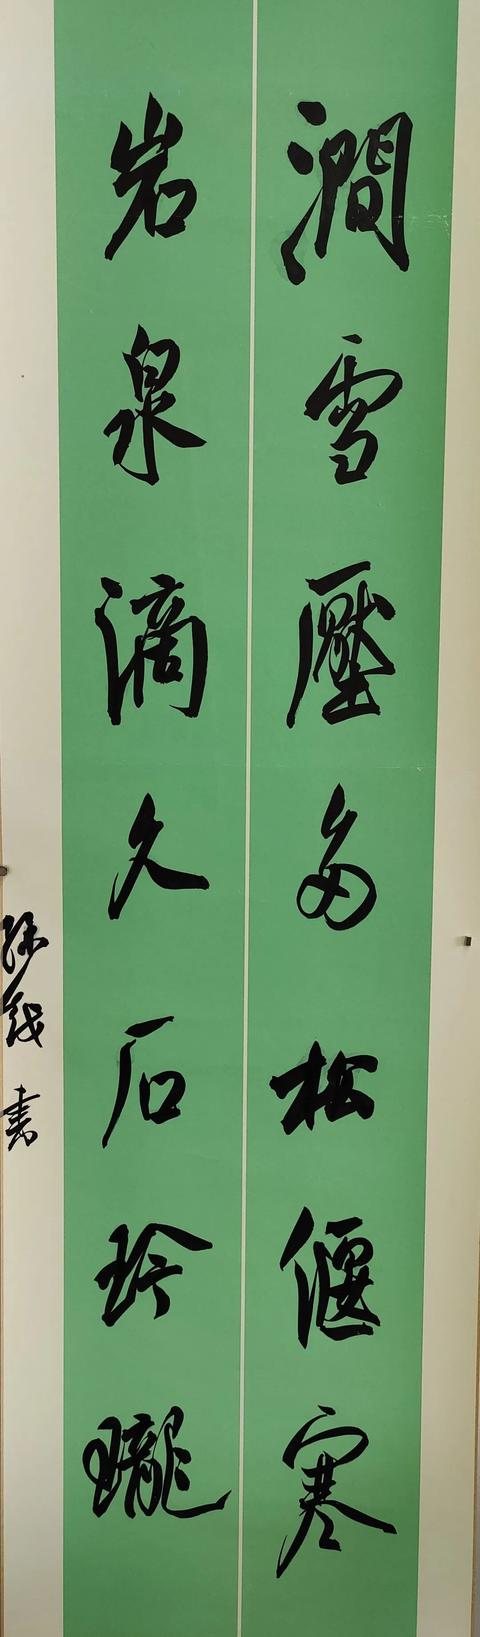 澗雪壓多松偃蹇
岩泉滴久石玲瓏
書